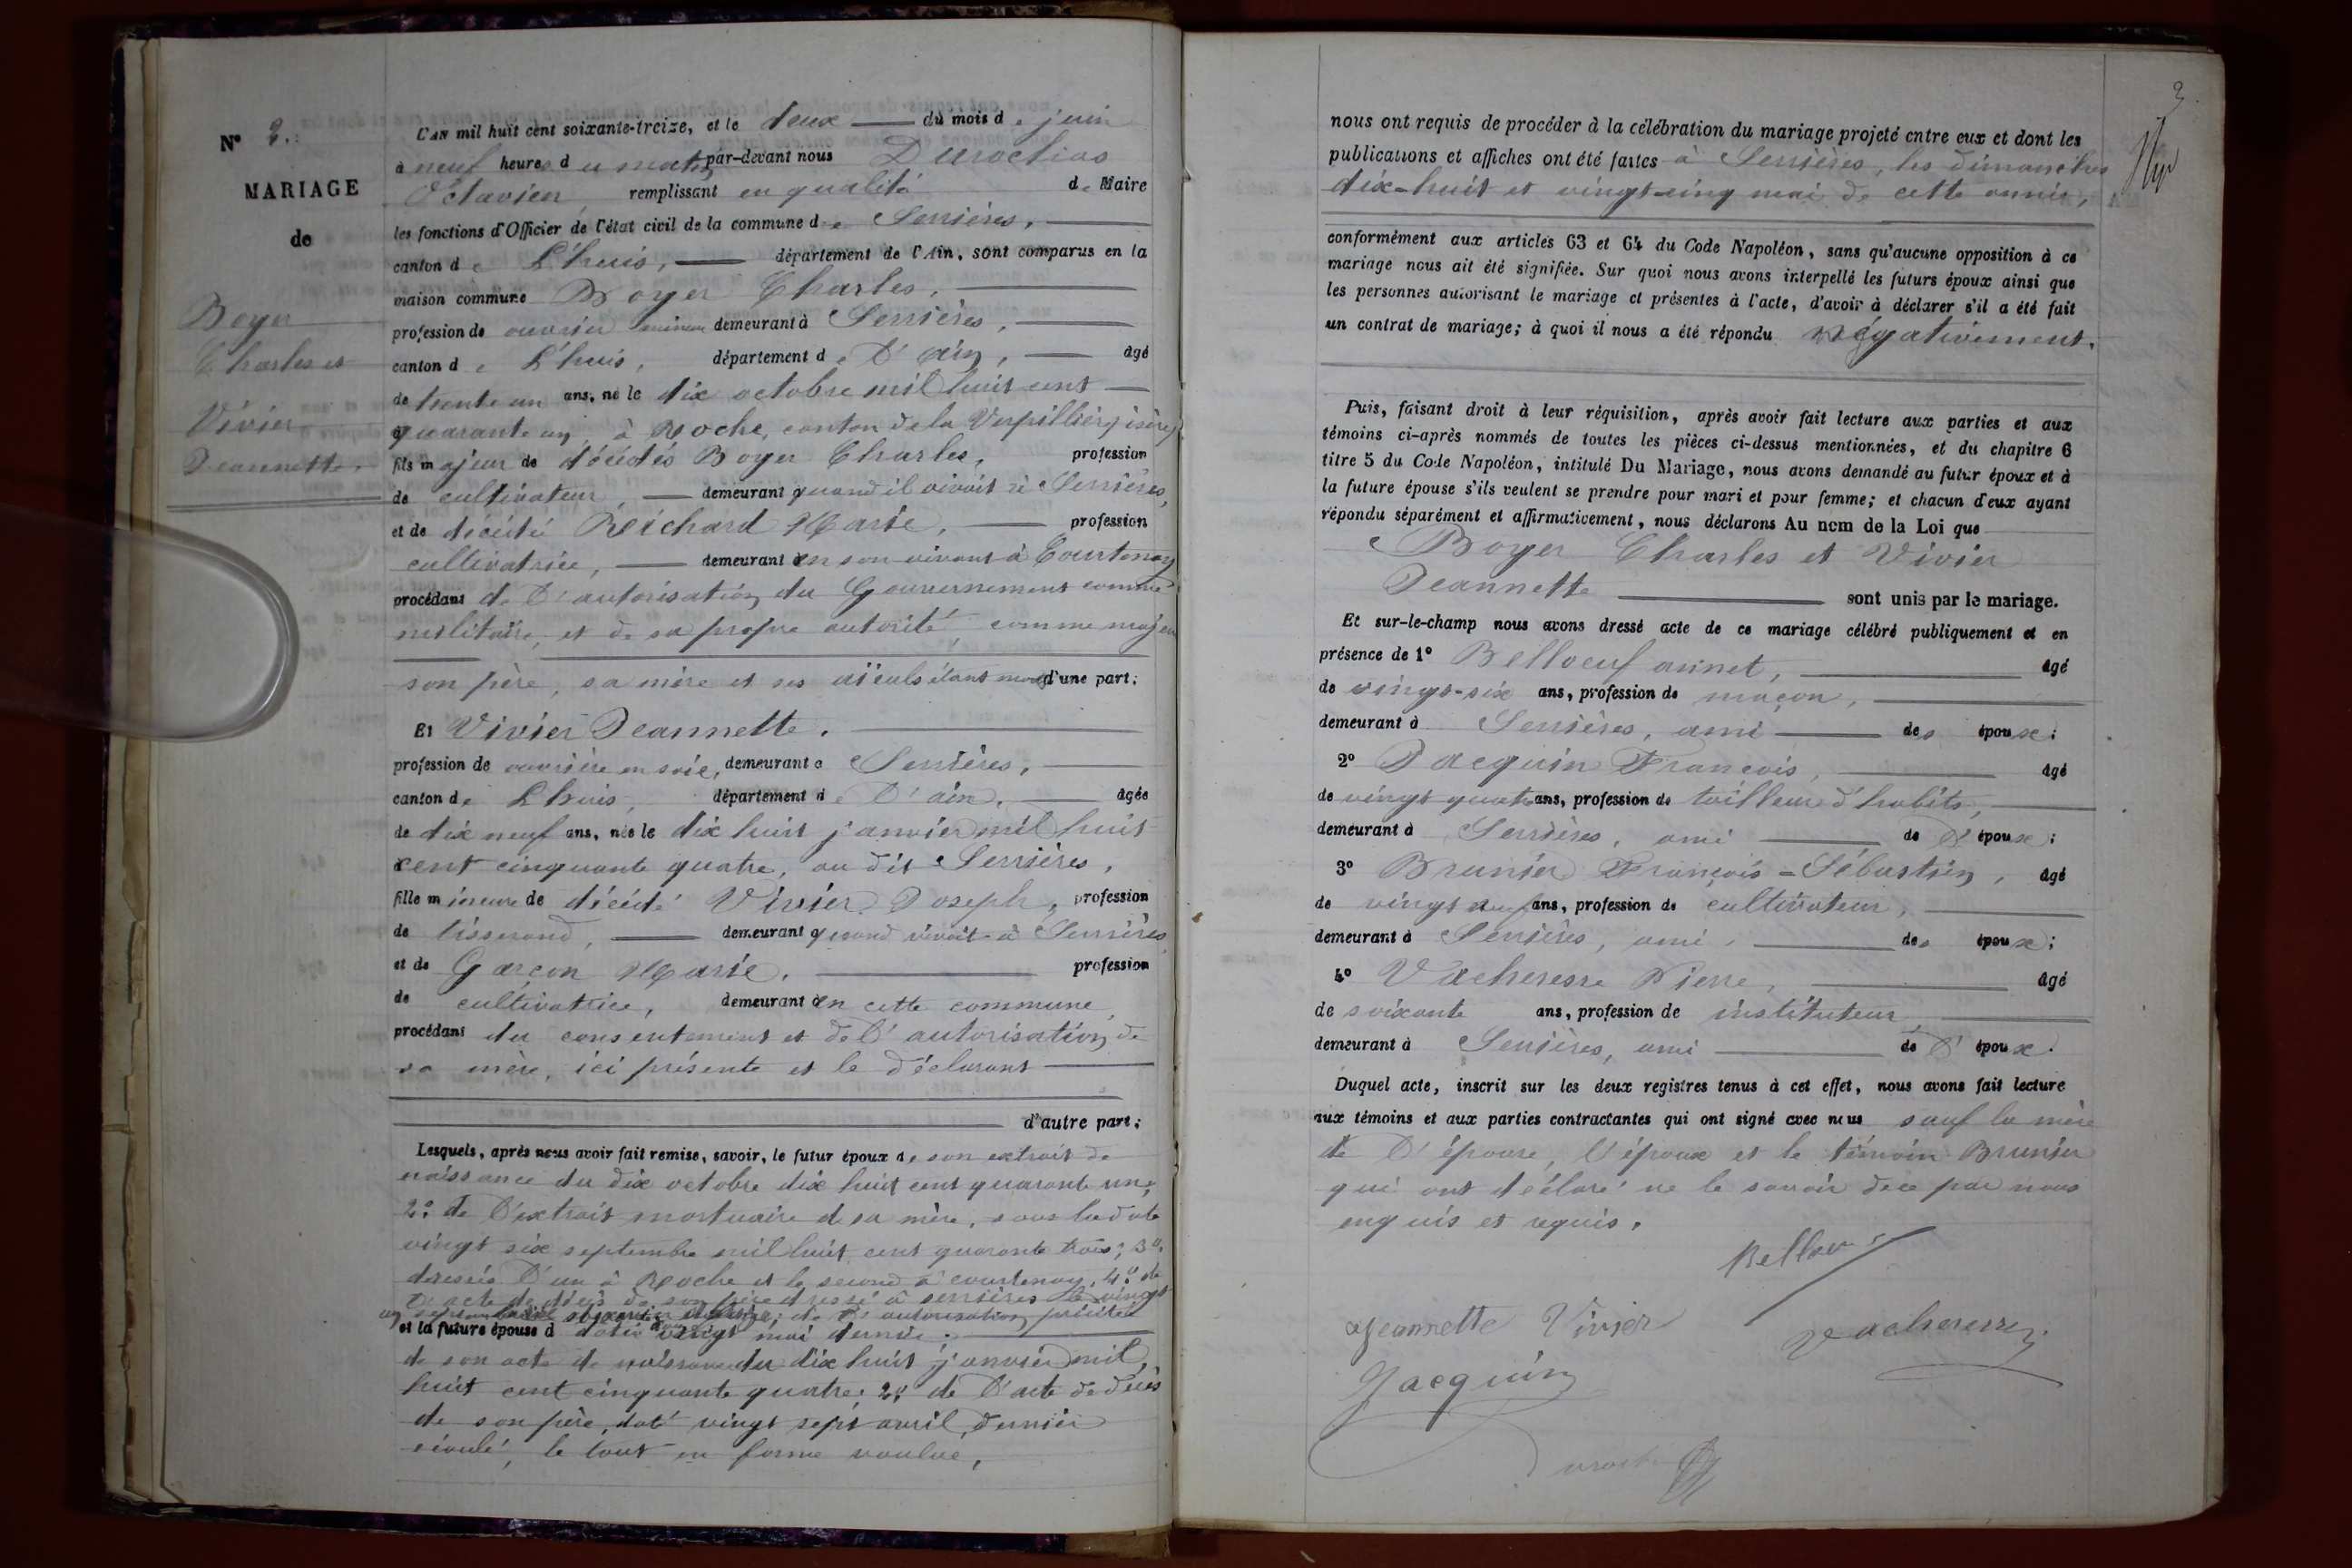 N° 2.
MARIAGE
de
Boyer
Charles et
Vivier
Jeannette.
L'AN mil huit cent soixante-treize, et le deux du mois de juin
à neuf heures du matin par-devant nous Durochas
Octavien, remplissant en qualité de Maire
les fonctions d'Officier de l'état civil de la commune de Serrières,
canton de L'huis, département de l'Ain, sont comparus en la
maison commune Boyer Charles,
profession de ouvrier mineur demeurant à Serrières,
canton de L'huis, département de l'ain, âgé
de trente un ans, né le dix octobre mil huit cent
quarante un, à Roche, canton de la Verpillière, isère,
fils majeur de décédés Boyer Charles, profession
de cultivateur, demeurant quand il vivait à Serrières,
et de décédé Reichard Marie, profession
cultivatrice, demeurant en son vivant à Courtenay
procédant de l'autorisation du Gouvernement comme
militaire, et de sa propre autorité, comme majeur
son père, sa mère et ses aïeuls étant morts d'une part;
Et Vivier Jeannette.
profession de ouvrière en soie, demeurant à Serrières,
canton de Lhuis, département de l'ain, âgée
de dix neuf ans, née le dix huit janvier mil huit
cent cinquante quatre, au dit Serrières,
fille mineure de décédé Vivier Joseph, profession
de tisserand, demeurant quand vivait à Serrières
et de Garçon Marie. profession
de cultivatrice, demeurant en cette commune,
procédant du consentement et de l'autorisation de
sa mère, ici présente et le déclarant
d'autre part;
Lesquels, après nous avoir fait remise, savoir, le futur époux de son extrait de
naissance du dix octobre dix huit cent quarante un;
2° de l'extrait mortuaire de sa mère, sous la date
vingt six septembre mil huit cent quarante trois; 3°
dressés l'un à Roche et le second à courtenay, 4° de
l'acte de décès de son père dressé à serrières le vingt
de l'autorisation précitée
et la future épouse d datée vingt mai dernier.
de son acte de naissance du dix huit janvier mil
huit cent cinquante quatre; 2° de l'acte de décès
de son père, daté vingt sept avril, dernier
écoulé, le tout en forme voulue,
3.
nous ont requis de procéder à la célébration du mariage projeté entre eux et dont les
publications et affiches ont été faites à Serrières, les dimanches
dix-huit et vingt-cinq mai de cette année,
conformément aux articles 63 et 64 du Code Napoléon, sans qu'aucune opposition à ce
mariage nous ait été signifiée. Sur quoi nous avons interpellé les futurs époux ainsi que
les personnes autorisant le mariage et présentes à l'acte, d'avoir à déclarer s'il a été fait
un contrat de mariage; à quoi il nous a été répondu négativement.
Puis, faisant droit à leur réquisition, après avoir fait lecture aux parties et aux
témoins ci-après nommés de toutes les pièces ci-dessus mentionnées, et du chapitre 6
titre 5 du Code Napoléon, intitulé Du Mariage, nous avons demandé au futur époux et à
la future épouse s'ils veulent se prendre pour mari et pour femme; et chacun d'eux ayant
répondu séparément et affirmativement, nous déclarons Au nom de la Loi que
Boyer Charles et Vivier
Jeannette sont unis par le mariage.
Et sur-le-champ nous avons dressé acte de ce mariage célébré publiquement et en
présence de 1° Belloeuf annet, âgé
de vingt-six ans, profession de maçon,
demeurant à Serrières, ami des époux;
2° Jacquin François, âgé
de vingt quatre ans, profession de tailleur d'habits,
demeurant à Serrières, ami de l'époux;
3° Brunier François-Sébastien, âgé
de vingt neuf ans, profession de cultivateur,
demeurant à Serrières, ami des époux;
4° Vacheresse Pierre, âgé
de soixante ans, profession de instituteur,
demeurant à Serrières, ami de l'époux.
Duquel acte, inscrit sur les deux registres tenus à cet effet, nous avons fait lecture
aux témoins et aux parties contractantes qui ont signé avec nous sauf la mère
de l'épouse, l'époux et le témoin Brunier
qui ont déclaré ne le savoir de ce par nous
enquis et requis.
Jeannette Vivier
Vacheresse
Jacquin